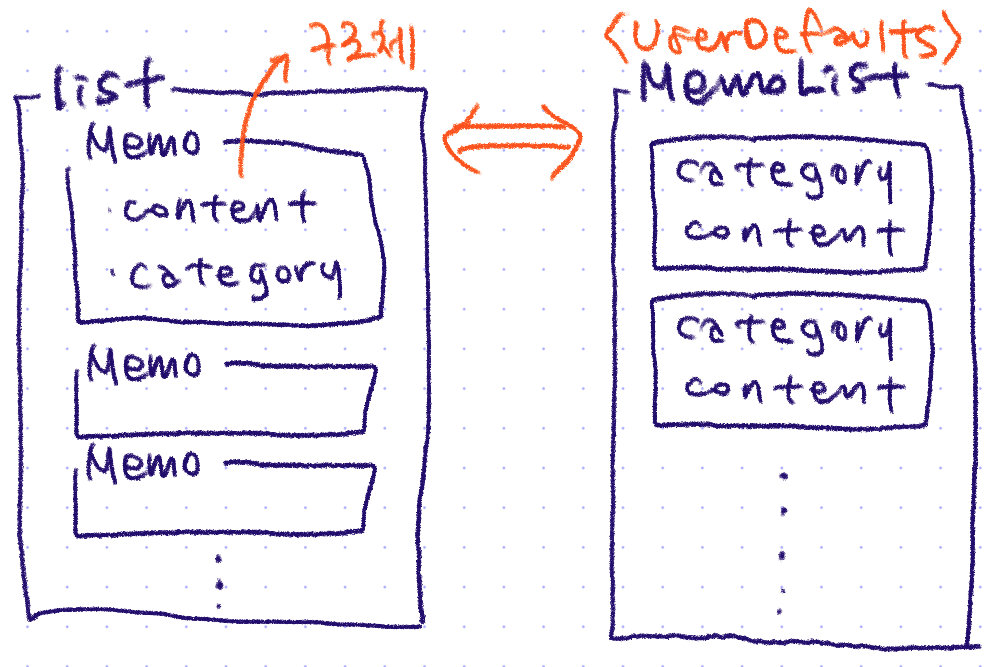 list
Memo
· content
· category
Memo
Memo
<UserDefaults>
MemoList
category
content
category
content